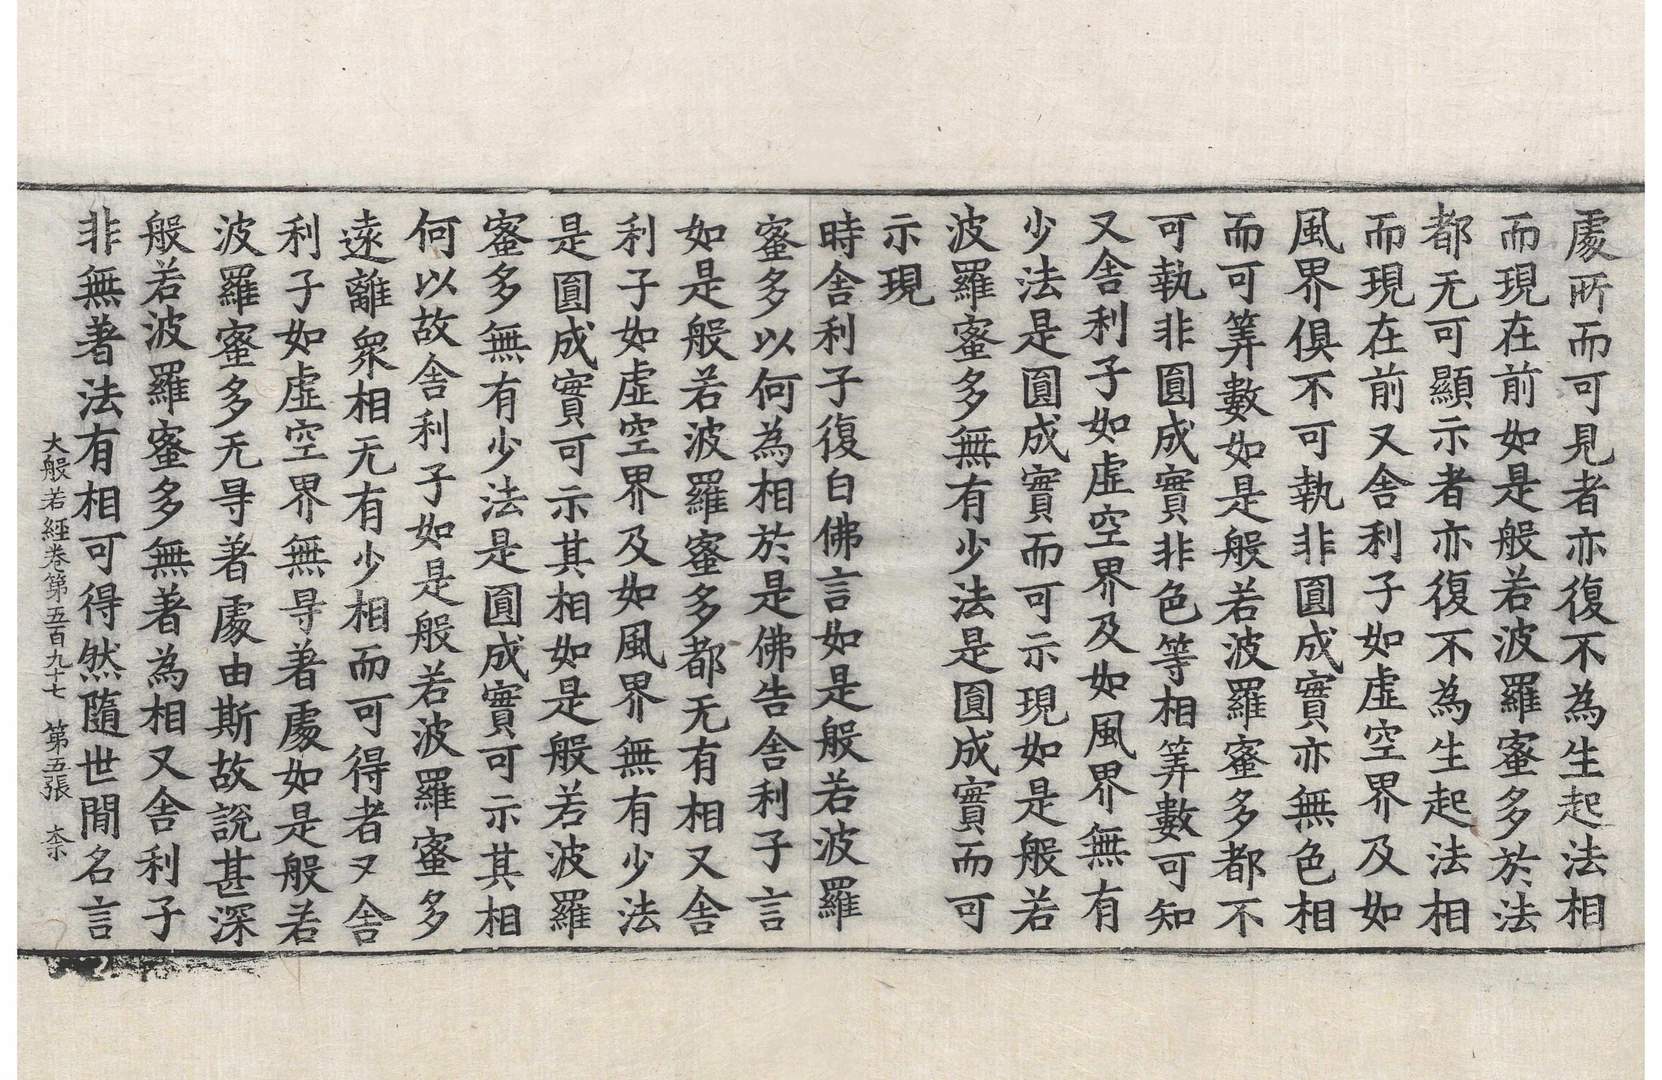 處所而可見者亦復不為生起法相
而現在前如是般若波羅蜜多於法
都无可顯示者亦復不為生起法相
而現在前又舍利子如虛空界及如
風界俱不可執非圓成實亦無色相
而可筭數如是般若波羅蜜多都不
可執非圓成實非色等相筭數可知
又舍利子如虛空界及如風界無有
少法是圓成實而可示現如是般若
波羅蜜多無有少法是圓成實而可
示現
時舍利子復白佛言如是般若波羅
蜜多以何為相於是佛告舍利子言
如是般若波羅蜜多都无有相又舍
利子如虛空界及如風界無有少法
是圓成實可示其相如是般若波羅
蜜多無有少法是圓成實可示其相
何以故舍利子如是般若波羅蜜多
遠離衆相无有少相而可得者又舍
利子如虛空界無㝵著處如是般若
波羅蜜多无㝵著處由斯故說甚深
般若波羅蜜多無著為相又舍利子
非無著法有相可得然隨世間名言
大般若經卷第五百九十七 第五張 柰